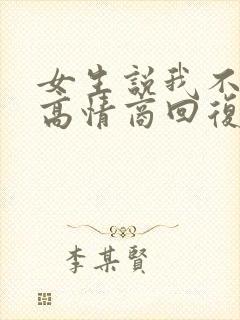 女生説我不
高情商回復
李某賢